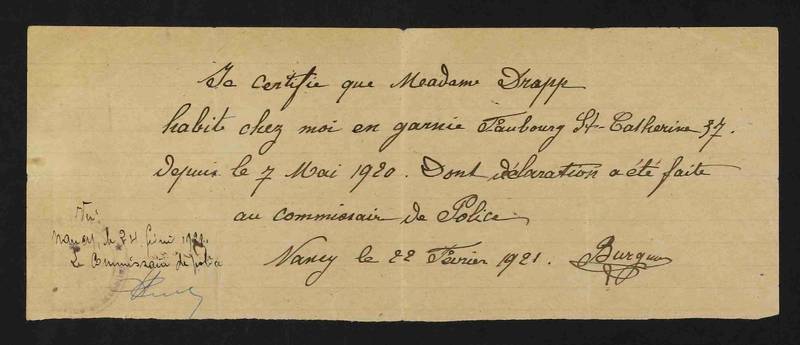 Je certifie que Meadame Drapp
habite chez moi en garnie Faubourg St-Catherine 37.
depuis le 7 Mai 1920. Dont déclaration a été faite
au commissair de Police
Nancy le 22 Fevrier 1921. Burquin
Vu
Nancy, le 24 1921.
Le Commissaire de police